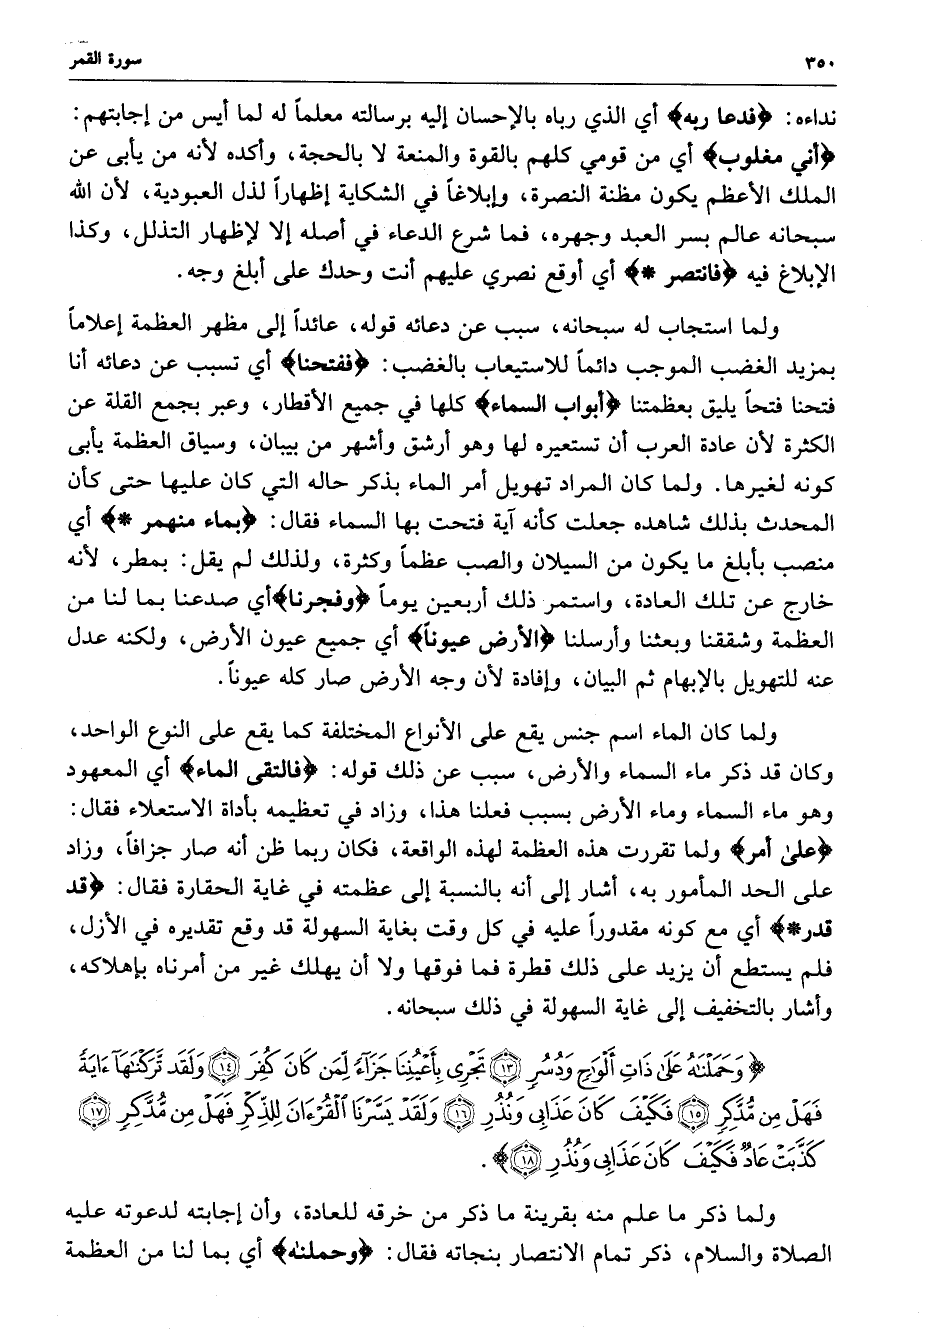 ٣٥٠ سورة القمر
نداءه: ﴿فدعا ربه﴾ أي الذي رباه بالإحسان إليه برسالته معلماً له لما أيس من إجابتهم:
﴿أني مغلوب﴾ أي من قومي كلهم بالقوة والمنعة لا بالحجة، وأكده لأنه من يأبى عن
الملك الأعظم يكون مظنة النصرة، وإبلاغاً في الشكاية إظهاراً لذل العبودية، لأن الله
سبحانه عالم بسر العبد وجهره، فما شرع الدعاء في أصله إلا لإظهار التذلل، وكذا
الإبلاغ فيه ﴿فانتصر *﴾ أي أوقع نصري عليهم أنت وحدك على أبلغ وجه.
ولما استجاب له سبحانه، سبب عن دعائه قوله، عائداً إلى مظهر العظمة إعلاماً
بمزيد الغضب الموجب دائماً للاستيعاب بالغضب: ﴿ففتحنا﴾ أي تسبب عن دعائه أنا
فتحنا فتحاً يليق بعظمتنا ﴿أبواب السماء﴾ كلها في جميع الأقطار، وعبر بجمع القلة عن
الكثرة لأن عادة العرب أن تستعيره لها وهو أرشق وأشهر من بيبان، وسياق العظمة يأبى
كونه لغيرها. ولما كان المراد تهويل أمر الماء بذكر حاله التي كان عليها حتى كأن
المحدث بذلك شاهده جعلت كأنه آية فتحت بها السماء فقال: ﴿بماء منهمر *﴾ أي
منصب بأبلغ ما يكون من السيلان والصب عظماً وكثرة، ولذلك لم يقل: بمطر، لأنه
خارج عن تلك العادة، واستمر ذلك أربعين يوماً ﴿وفجرنا﴾أي صدعنا بما لنا من
العظمة وشققنا وبعثنا وأرسلنا ﴿الأرض عيوناً﴾ أي جميع عيون الأرض، ولكنه عدل
عنه للتهويل بالإبهام ثم البيان، وإفادة لأن وجه الأرض صار كله عيوناً.
ولما كان الماء اسم جنس يقع على الأنواع المختلفة كما يقع على النوع الواحد،
وكان قد ذكر ماء السماء والأرض، سبب عن ذلك قوله: ﴿فالتقى الماء﴾ أي المعهود
وهو ماء السماء وماء الأرض بسبب فعلنا هذا، وزاد في تعظيمه بأداة الاستعلاء فقال:
﴿علىٰ أمر﴾ ولما تقررت هذه العظمة لهذه الواقعة، فكان ربما ظن أنه صار جزافاً، وزاد
على الحد المأمور به، أشار إلى أنه بالنسبة إلى عظمته في غاية الحقارة فقال: ﴿قد
قدر*﴾ أي مع كونه مقدوراً عليه في كل وقت بغاية السهولة قد وقع تقديره في الأزل،
فلم يستطع أن يزيد على ذلك قطرة فما فوقها ولا أن يهلك غير من أمرناه بإهلاكه،
وأشار بالتخفيف إلى غاية السهولة في ذلك سبحانه.
﴿وَحَمَلْنَٰهُ عَلَىٰ ذَاتِ أَلْوَٰحٍ وَدُسُرٍ ١٣ تَجْرِى بِأَعْيُنِنَا جَزَآءً لِّمَن كَانَ كُفِرَ ١٤ وَلَقَد تَّرَكْنَٰهَآ ءَايَةً
فَهَلْ مِن مُّدَّكِرٍ ١٥ فَكَيْفَ كَانَ عَذَابِى وَنُذُرِ ١٦ وَلَقَدْ يَسَّرْنَا ٱلْقُرْءَانَ لِلذِّكْرِ فَهَلْ مِن مُّدَّكِرٍ ١٧
كَذَّبَتْ عَادٌ فَكَيْفَ كَانَ عَذَابِى وَنُذُرِ ١٨﴾.
ولما ذكر ما علم منه بقرينة ما ذكر من خرقه للعادة، وأن إجابته لدعوته عليه
الصلاة والسلام، ذكر تمام الانتصار بنجاته فقال: ﴿وحملنٰه﴾ أي بما لنا من العظمة